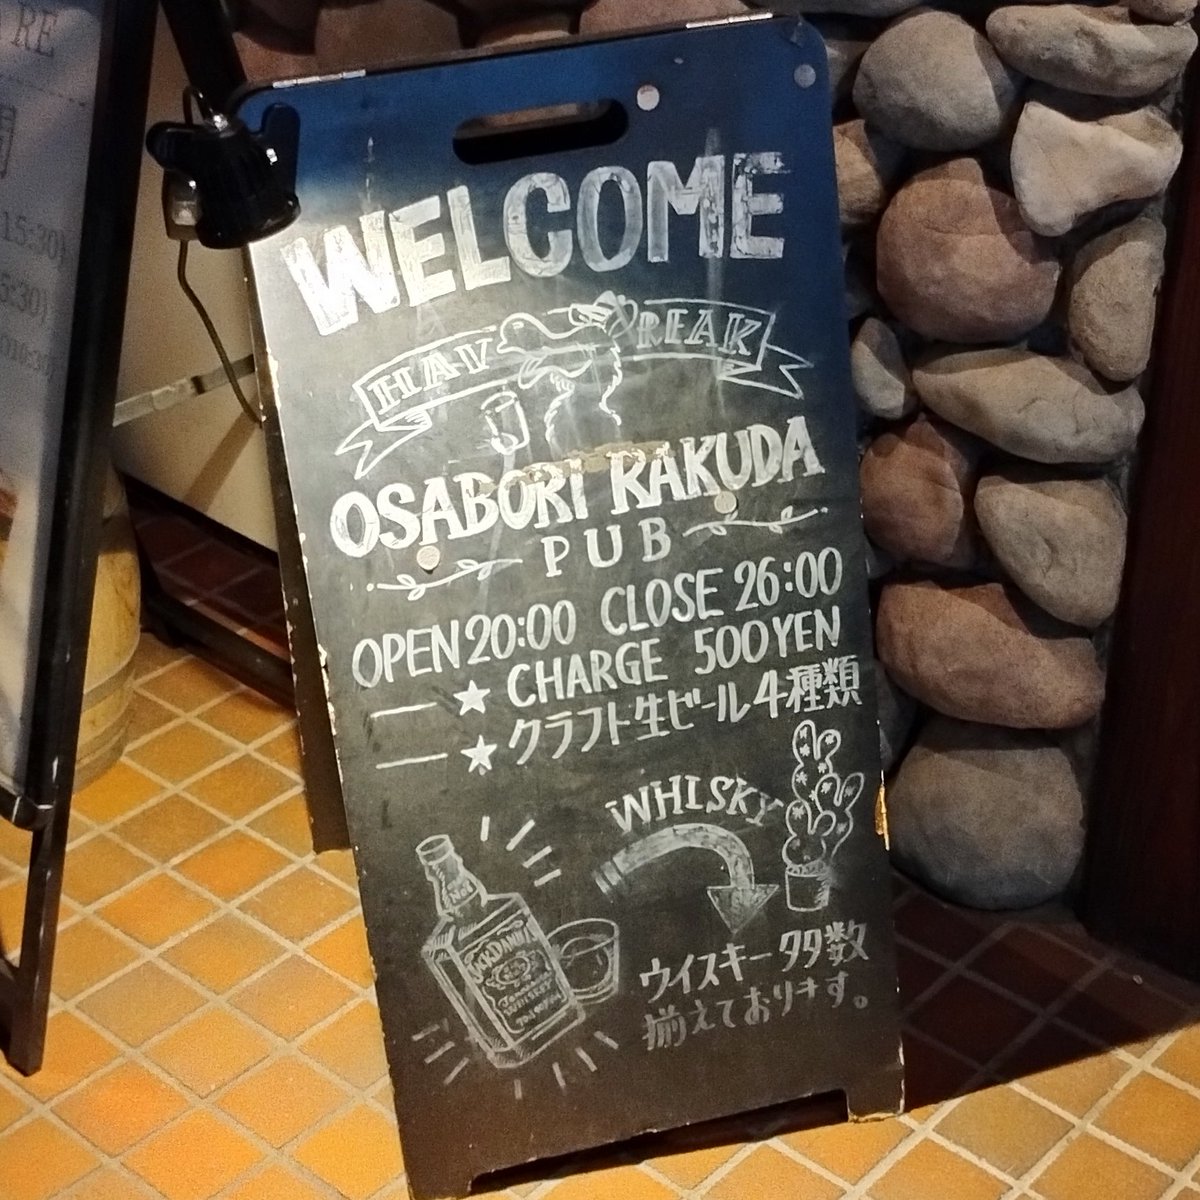 WELCOME
HAV REAK
OSABORI RAKUDA
PUB
OPEN 20:00 CLOSE 26:00
★ CHARGE 500YEN
★ クラフト生ビール4種類
WHISKY
ウイスキー多数
揃えております。
No.7
JACK DANIEL'S
WHISKEY
RE
15:30)
5:30)